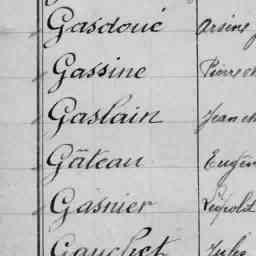 Gasdoué Arsène
Gassine Pierre
Gaslain Jean
Gâteau Eugèn
Gasnier Léopold
Gauchet Jules